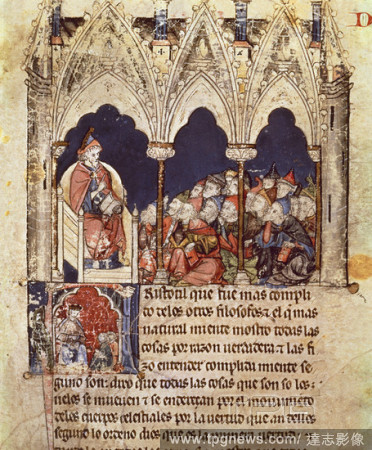 D
Ristotil que fue mas compli
do delos otros filosofos ⁊ el q̃ mas
natural miente mostro todas las
cosas por razon uerdadera ⁊ las fi
zo entender complida miente se
gund son. dixo que todas las cosas que son so los
cielos se mueuen ⁊ se enderecan por el mouimieto
delos cuerpos celestiales por la uertud que an dellos
segund lo ordeno dios que es la primera uertud
www.tpgnews.com/ 達志影像